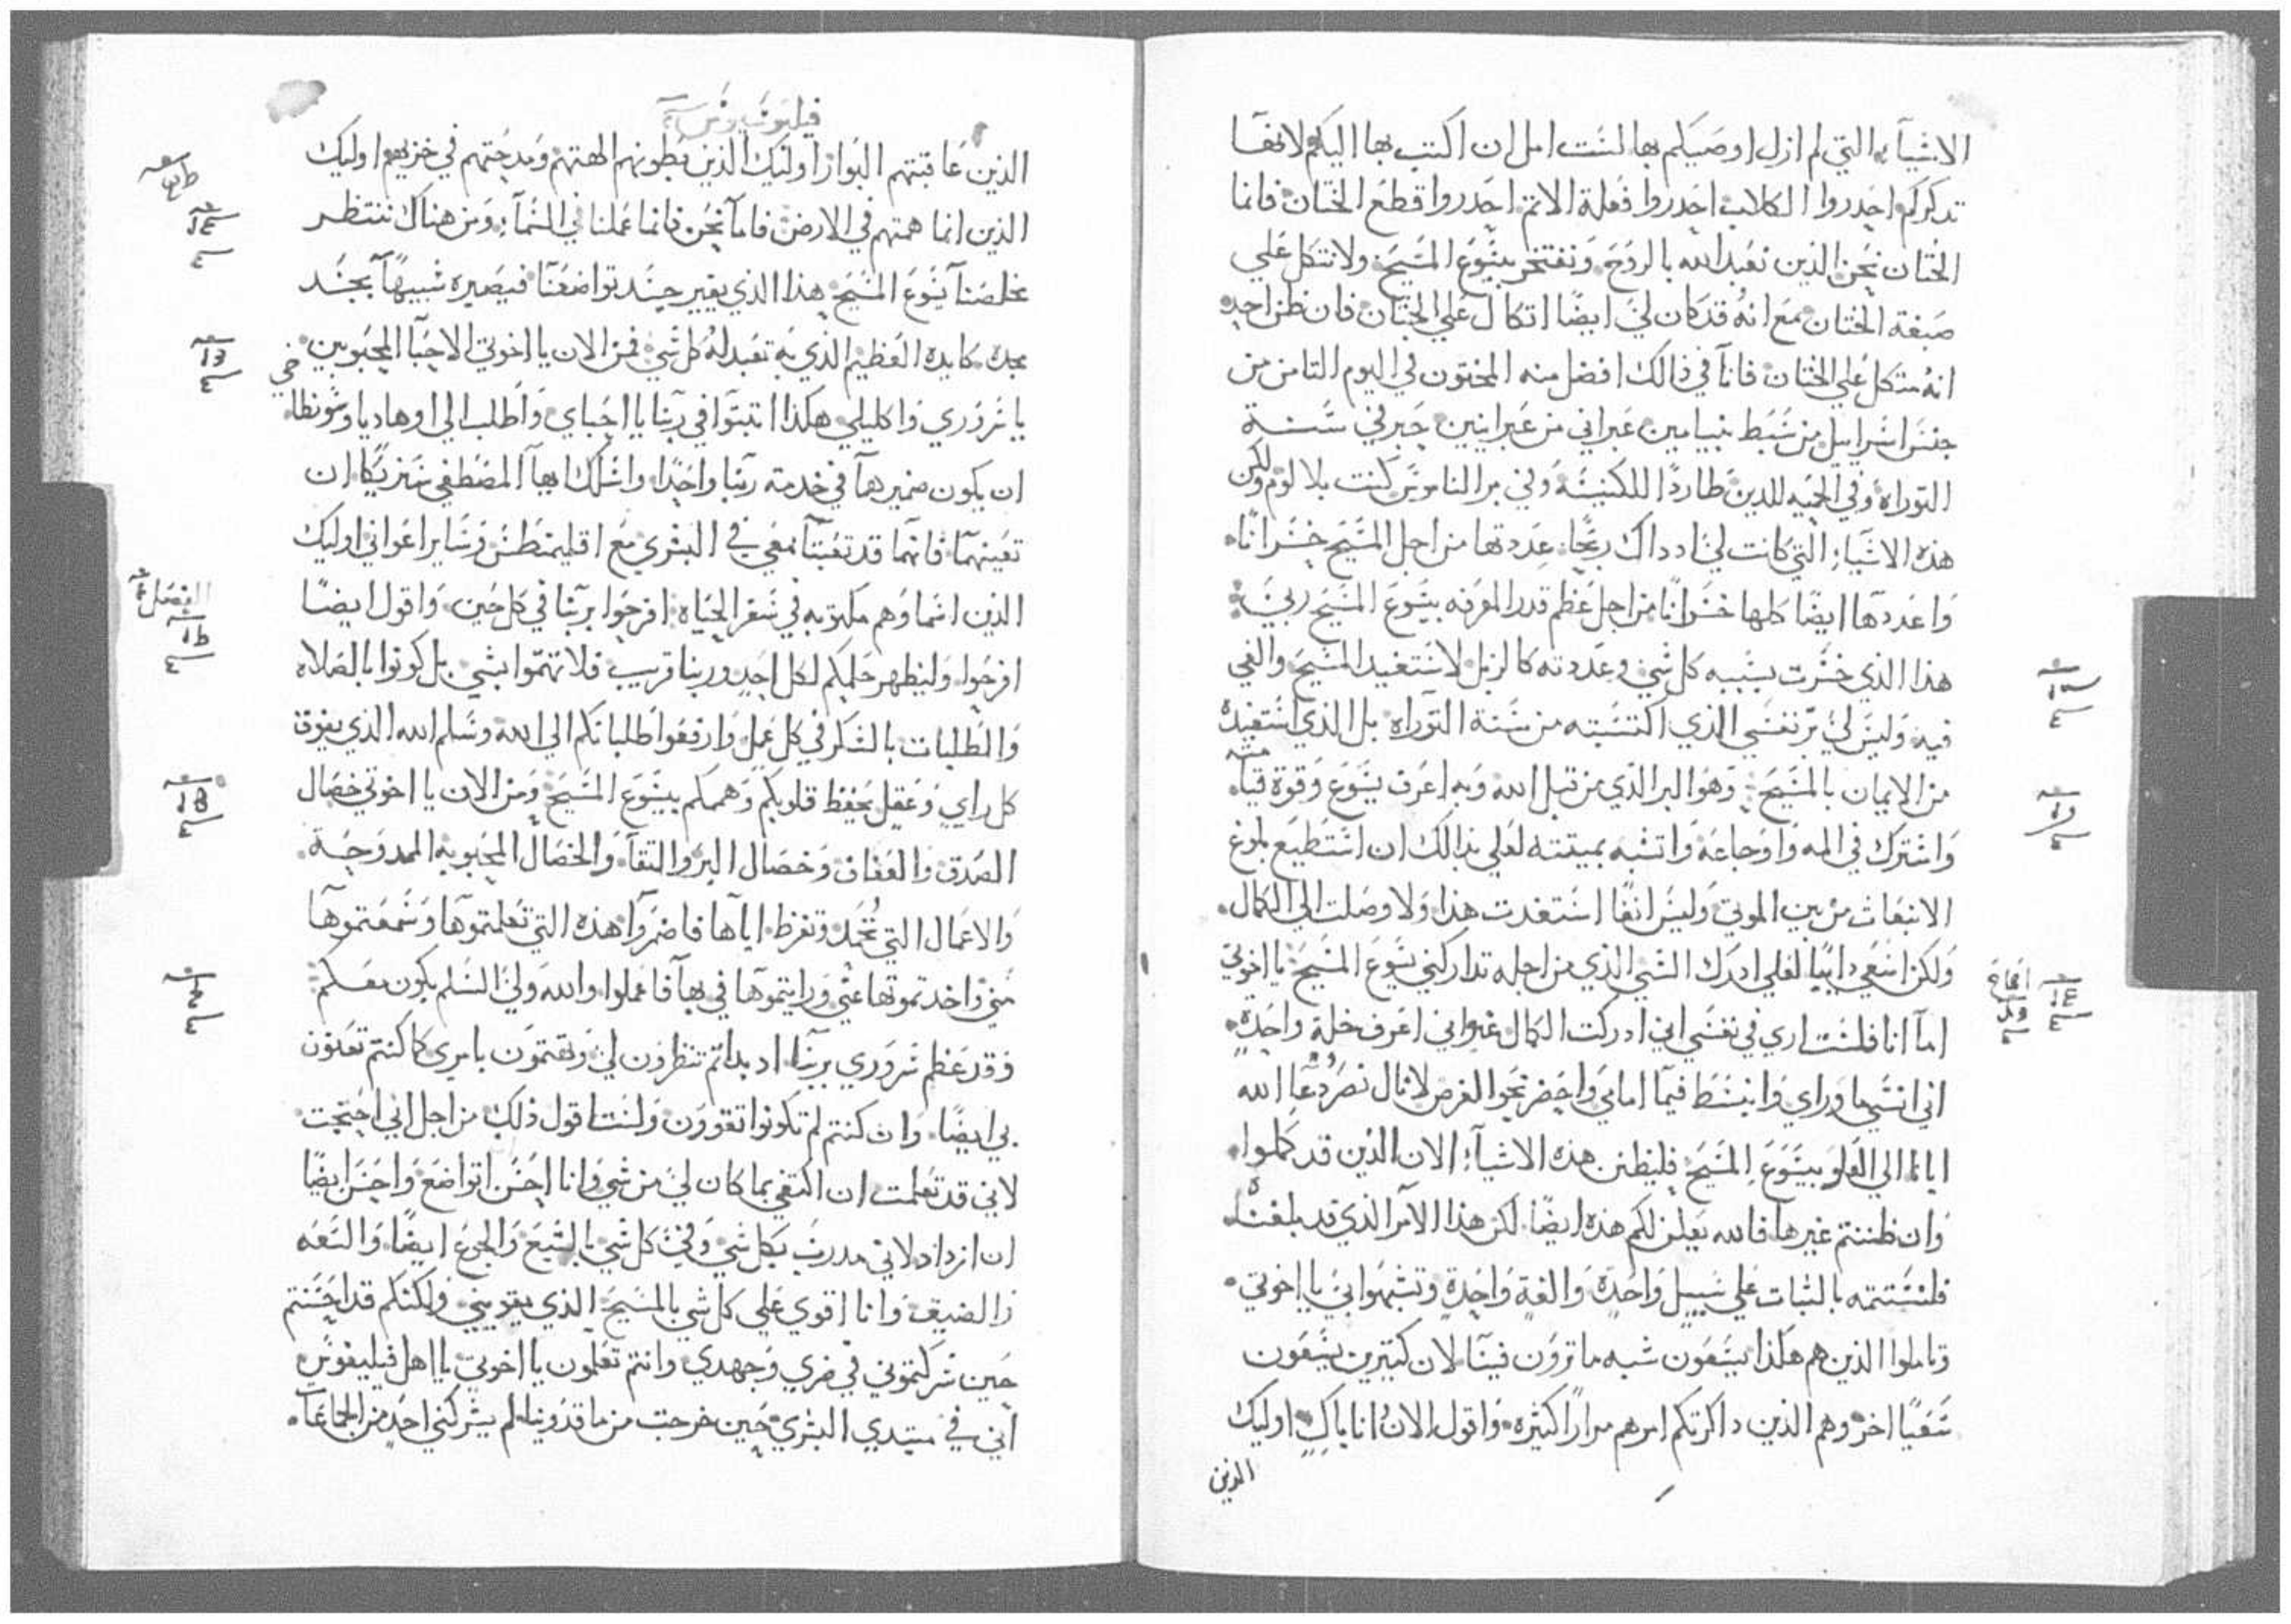 الاشيآ بها التي لم ازل اوصيكم بها لست امل ان اكتب بها اليكم لانها
تذكركم احدروا الكلاب احدروا فعلة الاتم احدروا قطع الختان فانما
الختان نحن الذين نعبد الله بالروح ونفتخر بيسوع المسيح ولا نتكل علي
صبغة الختان مع انه قد كان لي ايضا اتكال علي الختان فان ظن احد
انه متكل علي الختان فانا في ذالك افضل منه المختون في اليوم التامن من
جنس اسراييل من سبط بنيامين عبراني من عبرانيين حبر في سنة
التوراه وفي الحميه للدين طاردًا للكنيسه وفي بر الناموس كنت بلا لوم ولكن
هذه الاشياء التي كانت لي اد داك ربحًا عددتها من اجل المسيح خسرانًا
واعددها ايضًا كلها خسرانًا من اجل عظم قدر المعرفه بيسوع المسيح ربي
هذا الذي خسرت بسببه كل شي وعددته كالزبل لاستفيد المسيح والفي
فيه وليس لي بر نفسي الذي اكتسبته من سنة التوراه بل الذي استفيده
من الايمان بالمسيح وهو البر الذي من قبل الله وبه اعرف يسوع وقوة قيامته
واشترك في المه واوجاعه واتشبه بميتته لعلي بذالك ان استطيع بلوغ
الانبعاث من بين الموتي وليس انفًا استفدت هذا ولا وصلت الي الكمال
ولكن اسعي دايبًا لعلي ادرك الشي الذي من اجله تداركني يسوع المسيح يا اخوتي
اما انا فلست اري في نفسي اني ادركت الكمال غير اني اعرف خلة واحدة
اني انسي ما وراي وانبسط فيما امامي واحضر نحو الغرض لانال نصر دعا الله
ايانا الي العلو بيسوع المسيح فليظن هذه الاشياء الان الذين قد كملوا
وان ظننتم غيرها فالله يعلن لكم هذه ايضًا لكن هذا الامر الذي قد بلغناه
فلنستتمه بالتبات علي سبيل واحدة والفة واحدة وتشبهوا بي يا اخوتي
وتاملوا الذين هم هكذا يسعون شبه ما ترون فينا لان كتيرين يسعون
سعيًا اخر وهم الذين داكرتكم امرهم مرارًا كثيره واقول الان وانا باكٍ اوليك
الذين
فيلبوسيوس
الذين عاقبتهم البوار اوليك الذين بطونهم الهتهم ومدحتهم في خزيهم اوليك
الذين انما همتهم في الارض فاما نحن فانما عملنا في السمآ ومن هناك ننتظر
مخلصنا يسوع المسيح هذا الذي يغيير جسد تواضعنا فيصيره شبيهًا بجسد
مجده كايده العظيم الذي به تعبد له كل شي فمن الان يا اخوتي الاحبا المحبوبين
يا سروري واكليلي هكذا اتبتوا في ربنا يا احباي واطلب الي اوهاديا وسونطاخي
ان يكون ضميرهما في خدمة ربنا واحدًا واسلك ايها المصطفي شريكا ان
تعينهما فانهما قد تعبتا معي في البشري مع اقليمنطس وساير اعواني اوليك
الذين اسماوهم مكتوبه في سفر الحياه افرحوا بربنا في كل حين واقول ايضًا
افرحوا وليظهر حلمكم لكل احد وربنا قريب فلا تهتموا بشي بل كونوا بالصلاه
والطلبات بالشكر في كل عمل وارفعوا طلباتكم الي الله وسلم الله الذي يفوق
كل راي وعقل يحفظ قلوبكم وهممكم بيسوع المسيح ومن الان يا اخوتي خصال
الصدق والعفاف وخصال البر والتقا والخصال المحبوبه الممدوحة
والاعمال التي تحمد وتقرظ اياها فاضمروا هذه التي تعلمتموها وسمعتموها
مني واخدتموها عني ورايتموها في بها فاعملوا والله ولي السلم يكون معكم
وقد عظم سروري بربنا اد بداتم تنظرون لي وتهتمون بامري كما كنتم تعنون
بي ايضًا وان كنتم لم تكونوا تقوون ولست اقول ذلك من اجل اني احتجت
لاني قد تعلمت ان اكتفي بما كان لي من شي وانا احسن اتواضع واحسن ايضًا
ان ازداد لاني مدرب بكل شي وفي كل شي بالشبع والجوع ايضًا والسعه
والضيق وانا اقوي علي كل شي بالمسيح الذي يقويني ولكنكم قد احسنتم
حين شركتموني في ضري وجهدي وانتم تعلمون يا اخوتي يا اهل فيليفوس
اني في مبتدي البشري حين خرجت من ماقدونيا لم يشركني احد من الجماعآ